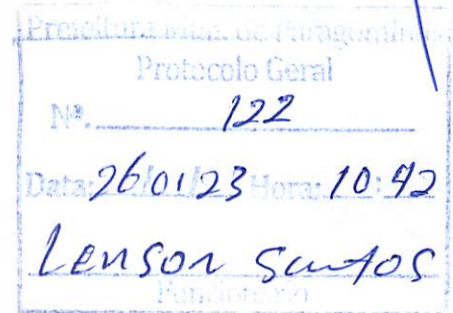 Prefeitura Munic. de Paragominas
Protocolo Geral
Nº. 122
Data: 26/01/23 Hora: 10:42
Lenson Santos
Funcionário